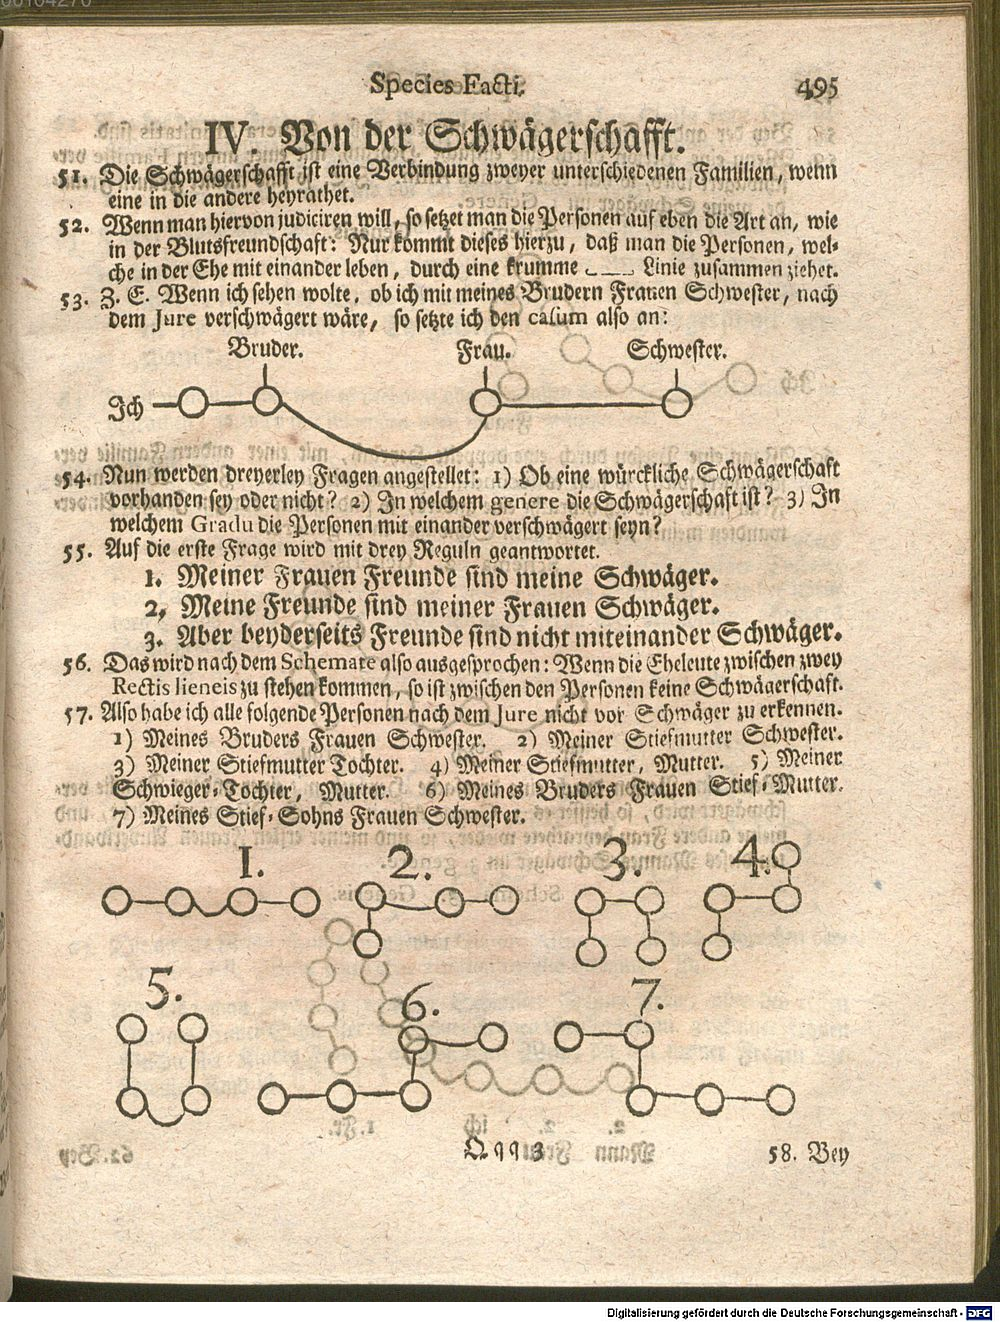 Species Facti. 495
IV. Von der Schwägerschafft.
51. Die Schwägerschafft ist eine Verbindung zweyer unterschiedenen Familien, wenn
eine in die andere heyrathet.
52. Wenn man hiervon judiciren will, so setzet man die Personen auf eben die Art an, wie
in der Blutsfreundschaft: Nur kommt dieses hierzu, daß man die Personen, wel-
che in der Ehe mit einander leben, durch eine krumme Linie zusammen ziehet.
53. Z. E. Wenn ich sehen wolte, ob ich mit meines Brudern Frauen Schwester, nach
dem Jure verschwägert wäre, so setzte ich den casum also an:
Bruder. Frau. Schwester.
Ich
54. Nun werden dreyerley Fragen angestellet: 1) Ob eine würckliche Schwägerschaft
vorhanden sey oder nicht? 2) In welchem genere die Schwägerschaft ist? 3) In
welchem Gradu die Personen mit einander verschwägert seyn?
55. Auf die erste Frage wird mit drey Reguln geantwortet.
1. Meiner Frauen Freunde sind meine Schwäger.
2, Meine Freunde sind meiner Frauen Schwäger.
3. Aber beyderseits Freunde sind nicht miteinander Schwäger.
56. Das wird nach dem Schemate also ausgesprochen: Wenn die Eheleute zwischen zwey
Rectis lieneis zu stehen kommen, so ist zwischen den Personen keine Schwägerschaft.
57. Also habe ich alle folgende Personen nach dem Jure nicht vor Schwäger zu erkennen.
1) Meines Bruders Frauen Schwester. 2) Meiner Stiefmutter Schwester.
3) Meiner Stiefmutter Tochter. 4) Meiner Stiefmutter, Mutter. 5) Meiner
Schwieger-Tochter, Mutter. 6) Meines Bruders Frauen Stief-Mutter.
7) Meines Stief-Sohns Frauen Schwester.
1. 2. 3. 4.
5. 6. 7.
Qqq 3 58. Bey
Digitalisierung gefördert durch die Deutsche Forschungsgemeinschaft - DFG